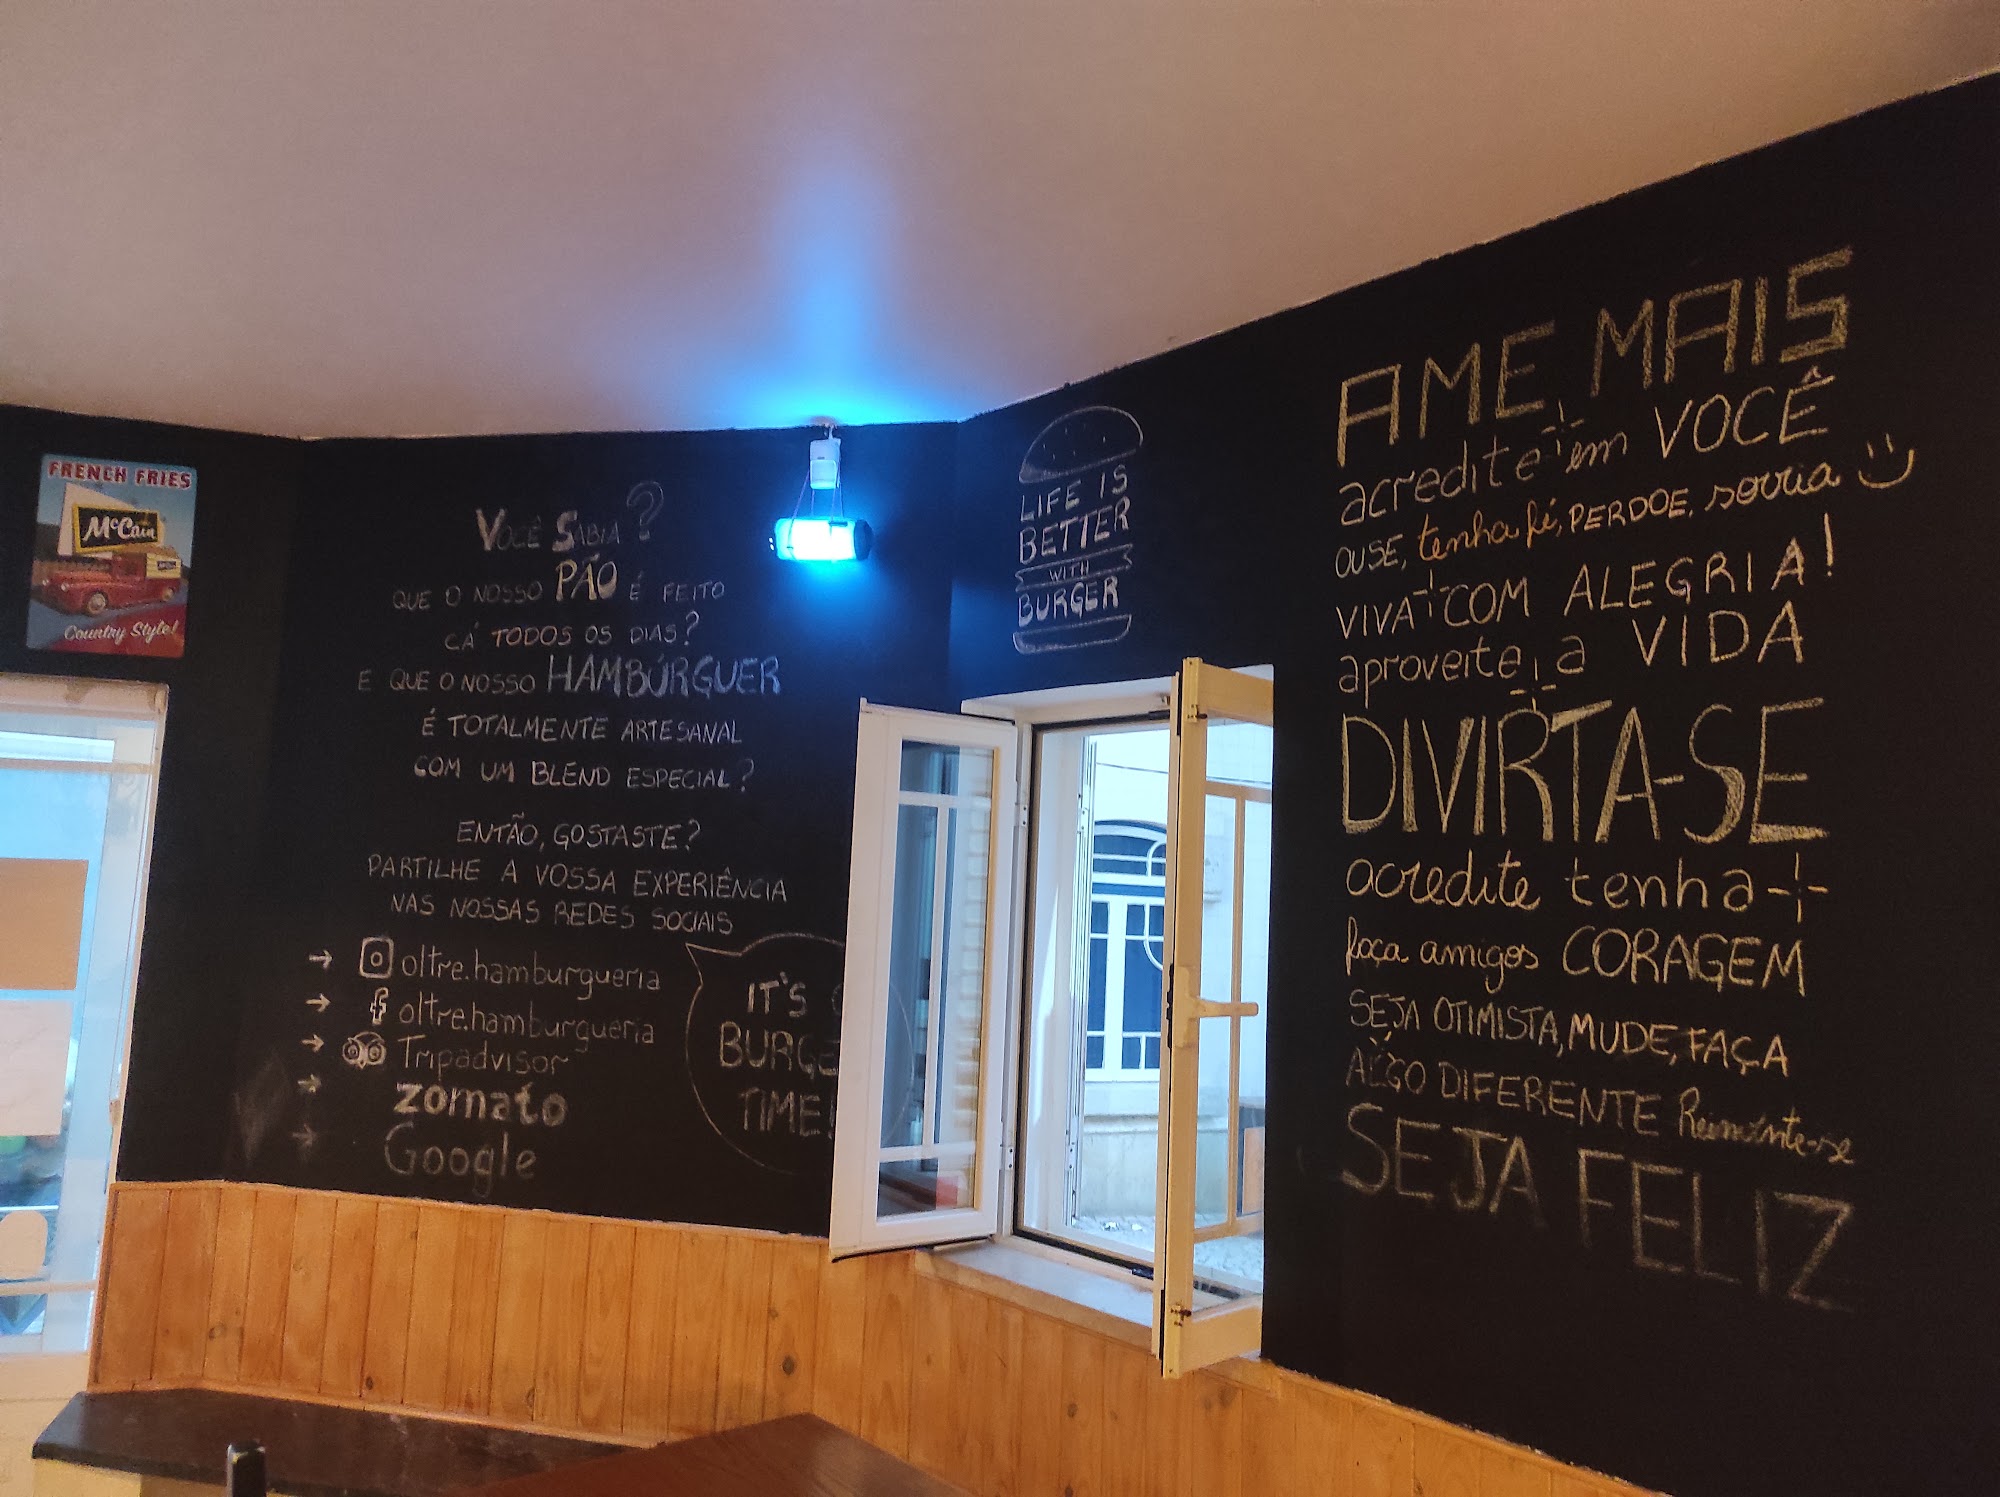 FRENCH FRIES
McCain
Country Style!
VOCÊ SABIA?
QUE O NOSSO PÃO É FEITO
CÁ TODOS OS DIAS?
E QUE O NOSSO HAMBÚRGUER
É TOTALMENTE ARTESANAL
COM UM BLEND ESPECIAL?
ENTÃO, GOSTASTE?
PARTILHE A VOSSA EXPERIÊNCIA
NAS NOSSAS REDES SOCIAIS
→ oltre.hamburgueria
→ f oltre.hamburgueria
→ Tripadvisor
→ zomato
→ Google
IT'S
BURGE
TIME!
LIFE IS
BETTER
WITH
BURGER
AME MAIS
acredite em VOCÊ
OUSE, tenha fé, PERDOE, sorria
VIVA COM ALEGRIA!
aproveite a VIDA
DIVIRTA-SE
acredite tenha
faça amigos CORAGEM
SEJA OTIMISTA, MUDE, FAÇA
ALGO DIFERENTE Reinvente-se
SEJA FELIZ